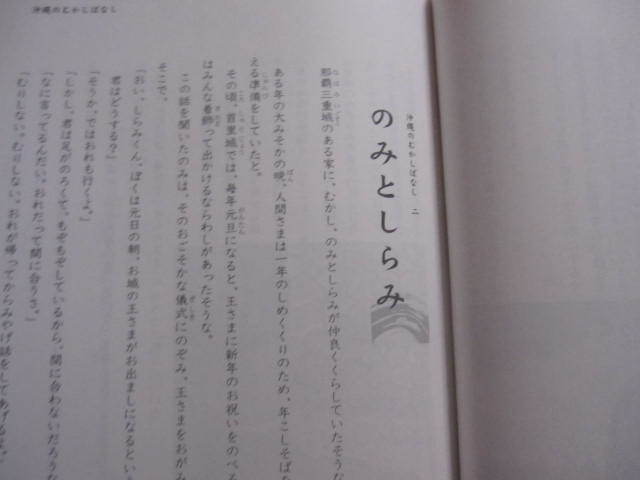 沖縄のむかしばなし
沖縄のむかしばなし 二
のみとしらみ
那覇三重城のある家に、むかし、のみとしらみが仲良くくらしていたそうな
ある年の大みそかの晩、人間さまは一年のしめくくりのため、年こしそばを
える準備をしていたと。
その頃、首里城では、毎年元旦になると、王さまに新年のお祝いをのべる
はみんな着飾って出かけるならわしがあったそうな。
この話を聞いたのみは、そのおごそかな儀式にのぞみ、王さまをおがみ
そこで、
「おい、しらみくん、ぼくは元日の朝、お城の王さまがお出ましになるとい
君はどうする?」
「そうか、ではおれも行くよ。」
「しかし、君は足がのろくて、もぞもぞしているから、間に合わないだろうな
「なに言ってるんだい。おれだって間に合うさ。」
「むりしない。むりしない。おれが帰ってからみやげ話をしてあげるよ。